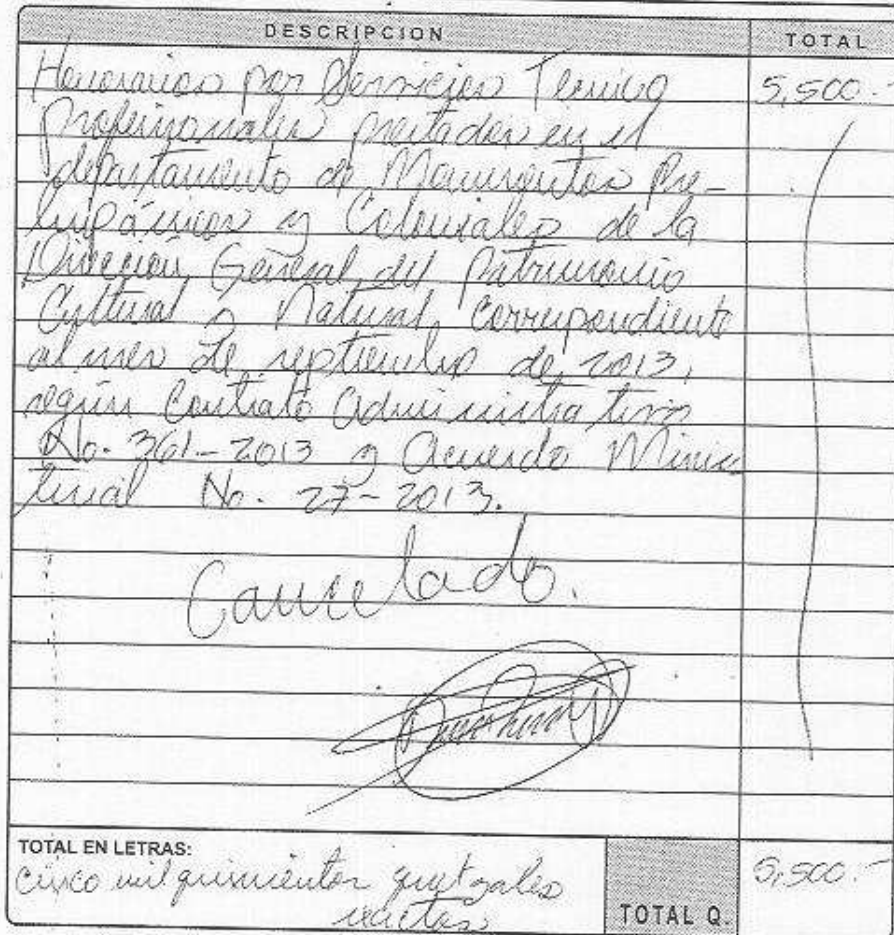 DESCRIPCION TOTAL
Honorarios por Servicios Técnico 5,500.-
Profesionales prestados en el
departamento de Monumentos Pre-
hispánicos y Coloniales de la
Dirección General del Patrimonio
Cultural y Natural correspondiente
al mes de septiembre de 2013,
según Contrato Administrativo
No. 361-2013 y Acuerdo Minis
terial No. 27-2013.
Cancelado.
TOTAL EN LETRAS:
Cinco mil quinientos quetzales
exactos
TOTAL Q. 5,500.-